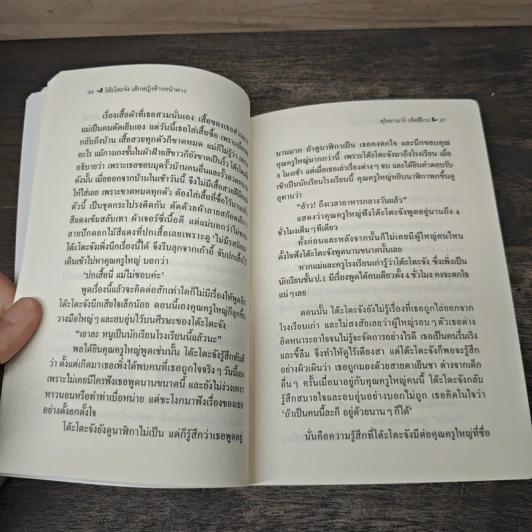 ๘๘ โต๊ะโตะจัง เด็กหญิงข้างหน้าต่าง
เรื่องเสื้อผ้าที่เธอสวมนั่นเอง เสื้อของเธอส่วน
แม่เป็นคนตัดเย็บเอง แต่วันนี้
กลับถึงบ้าน เสื้อสวยทุกตัวก็ขาดหมด แม่ก็ไม่รู้ว่า เพราะ
อะไร แม้กางเกงชั้นในผ้าฝ้ายสีขาวก็ยังขาดเป็นริ้ว โต๊ะโตะจัง
อธิบายว่า เพราะเธอชอบมุดรั้วบ้านคนอื่นและรั้วลวดหนาม
ดังนั้น เมื่อออกจากบ้านในวันนี้ จึงไม่มีเสื้อสวย
ให้ใส่เลย เพราะขาดหมดทุกตัว ต้องใส่เสื้อที่ซื้อไว้
เป็นชุดกระโปรงติดกัน ตัดด้วยผ้าลายสก๊อต
สีแดงเข้มสลับเทา ผ้าเจอร์ซี่เนื้อดี แต่แม่บอกว่า
ลายปักดอกไม้สีแดงที่ปกเสื้อเลยเพราะดู “ไม่มีรสนิยม”
โต๊ะโตะจังเพิ่งนึกเรื่องนี้ได้ จึงรีบลุกจากเก้าอี้ จับปกเสื้อ
เดินเข้าไปหาคุณครูใหญ่ บอกว่า
“ปกเสื้อนี่ แม่ไม่ชอบค่ะ”
พูดเรื่องนี้แล้วจะคิดต่อสักเท่าใดก็ไม่มีเรื่องให้พูด
โต๊ะโตะจังนึกเสียใจเล็กน้อย ตอนนี้เองคุณครูใหญ่ก็ลุกขึ้น
วางมือใหญ่ๆ และอบอุ่นไว้บนศีรษะของโต๊ะโตะจัง
“เอาละ หนูเป็นนักเรียนโรงเรียนนี้แล้วนะ”
พอได้ยินคุณครูใหญ่พูดเช่นนั้น โต๊ะโตะจังรู้สึกทันที
ตั้งแต่เกิดมา เธอเพิ่งได้พบคนที่เธอถูกใจจริงๆ วันนี้เอง
เพราะไม่เคยมีใครฟังเธอพูดนานขนาดนี้ และยังไม่ง่วงเหงา
หาวนอนหรือทำท่าเบื่อหน่าย แต่ชะโงกมาฟังเรื่องของเธอ
อย่างตั้งอกตั้งใจ
โต๊ะโตะจังยังดูนาฬิกาไม่เป็น แต่ก็รู้สึกว่าเธอพูดอยู่
นานมาก ถ้าดูนาฬิกาเป็น เธอคงตกใจ และนึกขอบคุณ
คุณครูใหญ่มากกว่านี้ เพราะโต๊ะโตะจังมาถึงโรงเรียน เมื่อ
๘ โมงเช้า แต่เมื่อเธอเล่าเรื่องต่างๆ จบ และได้ยินคำตอบรับ
เข้าเป็นนักเรียนโรงเรียนนี้ คุณครูใหญ่หยิบนาฬิกาพกขึ้นดู
อุทานว่า
“อ้าว! ถึงเวลาอาหารกลางวันแล้ว”
แสดงว่าคุณครูใหญ่ฟังโต๊ะโตะจังพูดอยู่นานถึง ๔
ชั่วโมงเต็มๆ ทีเดียว
ทั้งก่อนและหลังจากนั้นก็ไม่เคยมีผู้ใหญ่คนไหน
ตั้งใจฟังโต๊ะโตะจังพูดนานขนาดนั้นเลย
หากแม่และครูโรงเรียนเก่ารู้ว่าโต๊ะโตะจัง ซึ่งเพิ่งเป็น
นักเรียนชั้นป.๑ มีเรื่องพูดได้คนเดียวตั้ง ๔ ชั่วโมง คงจะตกใจ
แน่ๆ เลย
ตอนนั้น โต๊ะโตะจังยังไม่รู้เรื่องที่เธอถูกไล่ออกจาก
โรงเรียนเก่า และไม่สงสัยเลยว่าผู้ใหญ่รอบๆ ตัวเธอต่าง
อิดหนาระอาใจจนไม่รู้จะจัดการอย่างไรดี เธอเป็นคนร่าเริง
และขี้ลืม จึงทำให้ดูไร้เดียงสา แต่โต๊ะโตะจังก็พอจะรู้สึก
อย่างผิวเผินว่า เธอถูกมองด้วยสายตาเย็นชา ต่างจากเด็ก
อื่นๆ ครั้นเมื่อมาอยู่กับคุณครูใหญ่คนนี้ โต๊ะโตะจังกลับ
รู้สึกสบายใจและอบอุ่นอย่างบอกไม่ถูก เธอคิดในใจว่า
‘ถ้าเป็นคนนี้ละก็ อยู่ด้วยนานๆ ก็ได้’
นั่นคือความรู้สึกที่โต๊ะโตะจังมีต่อคุณครูใหญ่ที่ชื่อ